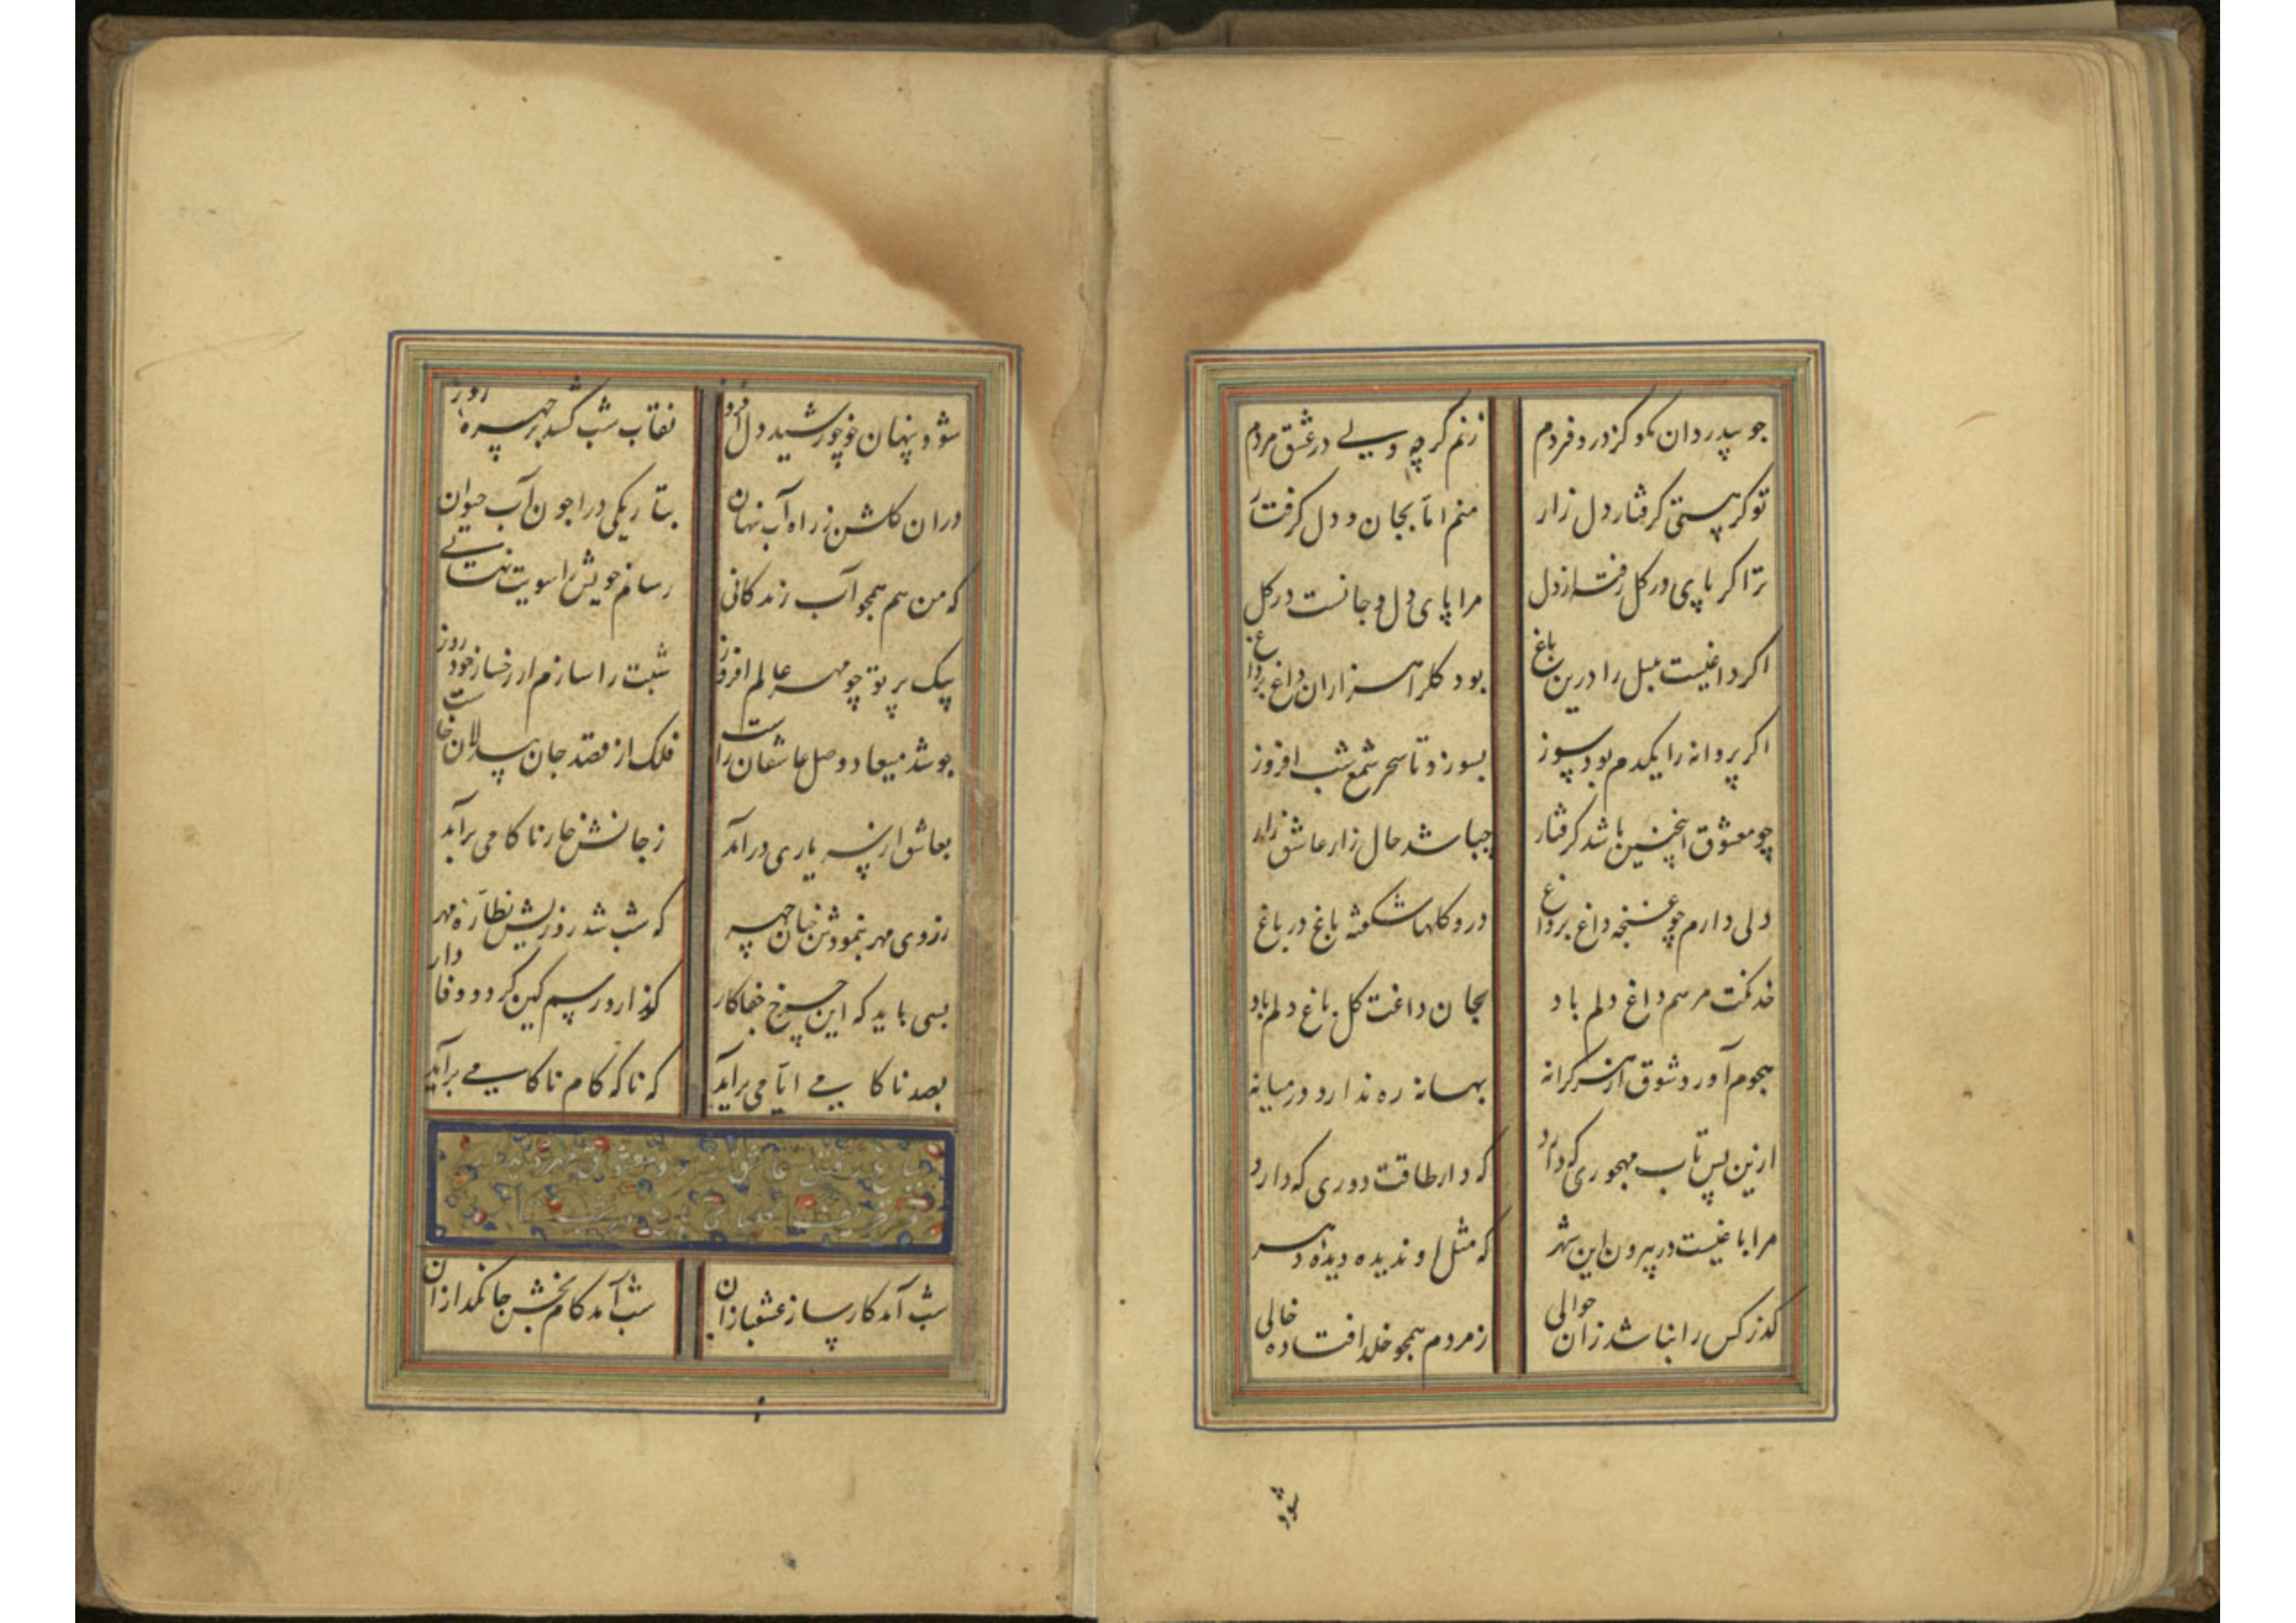 جو بیدردان مکو کز درد فردم
زنم کرچه ولی در عشق مردم
تو کر هستی کرفتار دل زار
منم اما بجان و دل کرفتار
ترا کر پای در کل رفته از دل
مرا پای دل و جانست در کل
اکر داغیست بلبل را درین باغ
بود کلرا هزاران داغ بر داغ
اکر پروانه را یکدم بود سوز
بسوزد تا سحر شمع شب افروز
چو معشوق اینچنین باشد کرفتار
چباشد حال زار عاشق زار
دلی دارم چو غنچه داغ بر داغ
درو کلها شکفته باغ در باغ
خدنکت مرهم داغ دلم باد
بجان داغت کل باغ دلم باد
هجوم آورد شوق از هر کرانه
بهانه ره ندارد در میانه
ازین پس تاب مهجوری که دارد
که دارد طاقت دوری که دارد
مرا باغیست در بیرون این شهر
که مثل او ندیده دیده دهر
کذر کس را نباشد زان حوالی
ز مردم همجو خلد افتاده خالی
شود
شود پنهان چو خورشید دل افروز
نقاب شب کشد بر چهره روز
دران کلشن ز راه آب پنهان
بتاریکی درا جون آب حیوان
که من هم همجو آب زندکانی
رسانم خویش را سویت نهانی
بیک پرتو چو مهر عالم افروز
شبت را سازم از رخسار خود روز
جو شد میعاد وصل عاشقان راست
فلک از قصد جان بیدلان خاست
بعاشق از پی یاری درآمد
ز جانش خار ناکامی برآمد
ز روی مهر بنمودش چنان چهر
که شب شد روزیش نظاره مهر
بسی باید که این چرخ جفاکار
کذارد رسم کین کردد وفادار
بصد ناکامی ایامی برآید
که تا که کام ناکامی برآید
شب آمد کارساز عشقبازان
شب آمد کام بخش جانکدازان